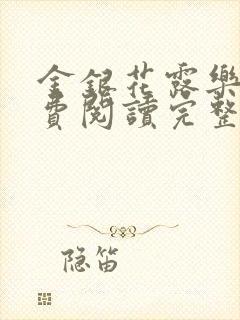 金銀花露樂
費閱讀完整
隐笛